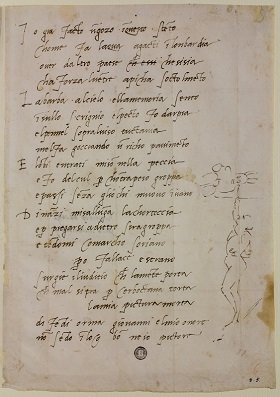 I o gia facto ũ gozo ĩ questo stẽto
chome fa lacqua agacti ĩ lonbardia
o ver daltro paese che essi che sisia
cha forza luẽtre apicha socto lmẽto
La barba alcielo ellamemoria sento
ĩ sullo scrignio elpecto fo darpia
elpennel sopraluiso tuctauia
melfa gocciando ũ richo pauimento
E lobi entrati miso nella peccia
e fo delcul p chõtrapeso groppa
e passi seza gliochi muouo ĩ uano
D inãzi misallũga lachorteccia
e p piegarsi adietro siragroppa
e tẽdomi comarcho soriano
po fallace e strano
surgie iliuditio ch lamẽte porta
ch mal sipra p cerboctana torta
lamia pictura morta
di fẽdi orma giovanni elmio onore
nõ sẽdo ilõg bõ ne io pictore